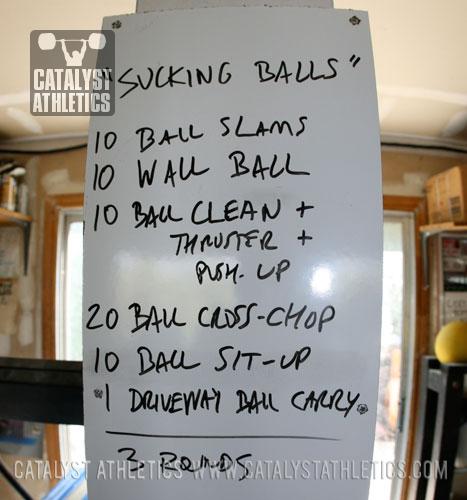 CATALYST
ATHLETICS
"SUCKING BALLS"
10 BALL SLAMS
10 WALL BALL
10 BALL CLEAN +
THRUSTER +
PUSH-UP
20 BALL CROSS-CHOP
10 BALL SIT-UP
*1 DRIVEWAY BALL CARRY*
3 ROUNDS
CATALYST ATHLETICS WWW.CATALYSTATHLETICS.COM